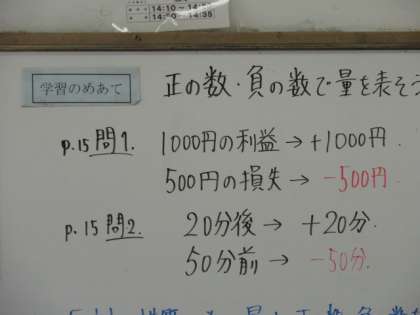 学習のめあて 正の数・負の数で量を表そう
p.15 問1. 1000円の利益→+1000円.
500円の損失→-500円
p.15 問2. 20分後→+20分.
50分前→-50分.